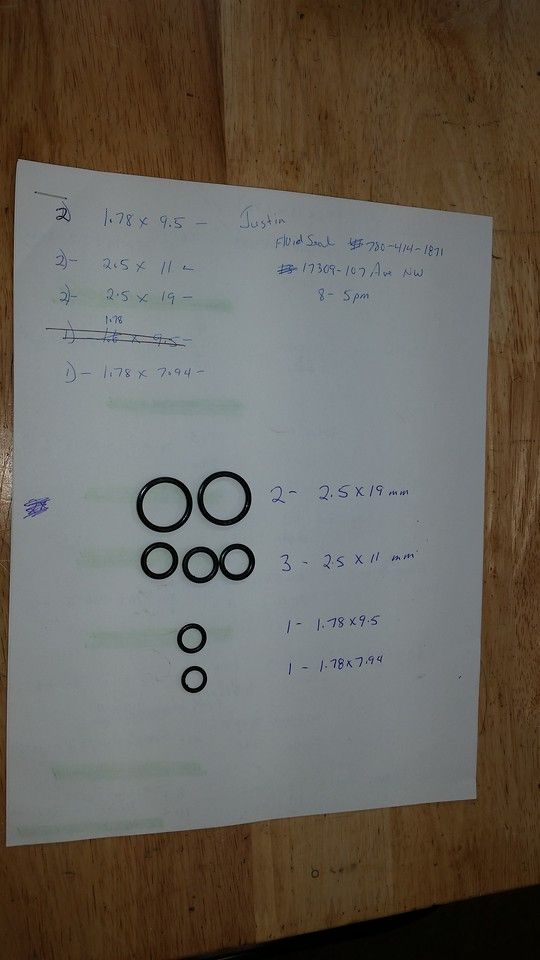 2) 1.78 x 9.5 - Justin
Fluid Seal 780-414-1871
2)- 2.5 x 11 - 17309-107 Ave NW
2)- 2.5 x 19 - 8-5pm
1.78
1) x 9.5 -
1)- 1.78 x 7.94 -
2- 2.5 x 19 mm
3 - 2.5 x 11 mm
1- 1.78 x 9.5
1 - 1.78 x 7.94